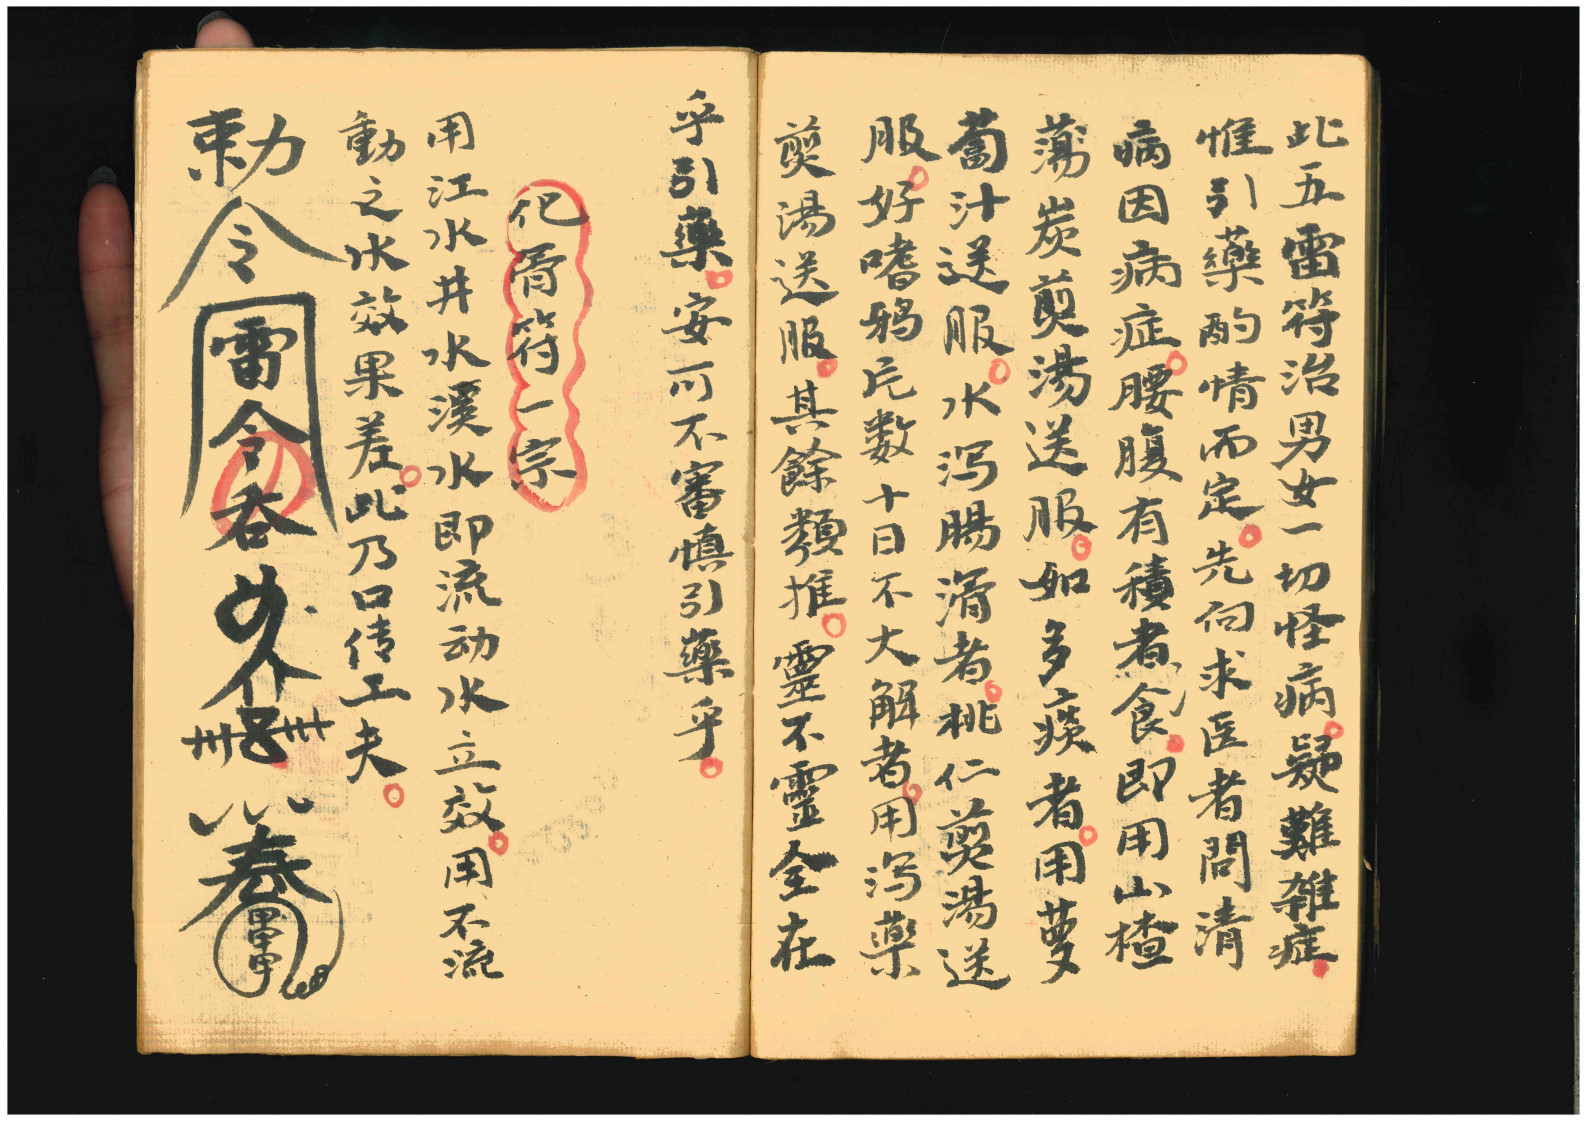 此五雷符治男女一切怪病疑難雑症
惟引藥酌情而定先向求医者問清
病因病症腰腹有積者食即用山楂
薄炭煎湯送服如多痰者用萝
蔔汁送服水泻腸滑者桃仁煎湯送
服好嗜鴉片数十日不大解者用泻藥
煎湯送服其餘類推靈不靈全在
乎引藥安可不審慎引藥乎
化骨符一宗
用江水井水溪水即流动水立效用不流
動之水效果差此乃口传工夫
勅令雷令